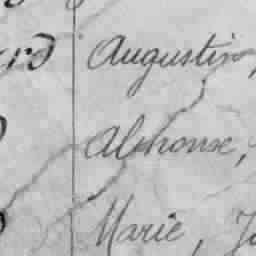 Augustin,
Alphonse,
Marie,